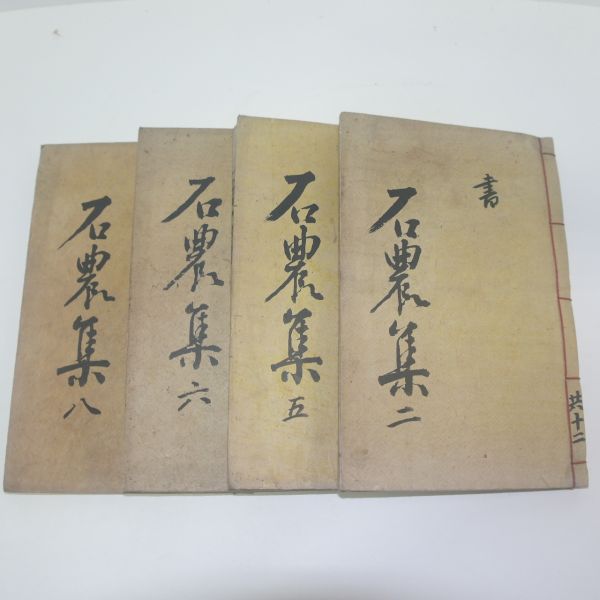 書
石農集 二
共十二
石農集 五
石農集 六
石農集 八